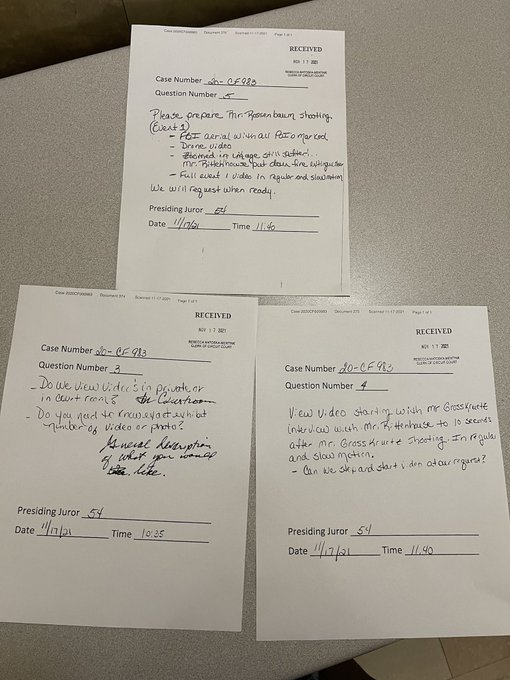 Case 2020CF000983 Document 376 Scanned 11-17-2021 Page 1 of 1
RECEIVED
NOV 17 2021
REBECCA MATOSKA-MENTINK
CLERK OF CIRCUIT COURT
Case Number 20-CF983
Question Number 5
Please prepare Mr. Rossenbaum shooting.
(Event 1)
- FBI aerial with all POI marked
- Drone video
- Zoomed in image still after
Mr. Rittenhouse put down fire extinguisher
- Full event 1 video in regular and slow motion
We will request when ready.
Presiding Juror 54
Date 11/17/21 Time 11:40
Case 2020CF000983 Document 374 Scanned 11-17-2021 Page 1 of 1
RECEIVED
NOV 17 2021
REBECCA MATOSKA-MENTINK
CLERK OF CIRCUIT COURT
Case Number 20-CF983
Question Number 3
- Do we view video's in private or
in court room? In Courtroom
- Do you need to know exact exhibit
number of video or photo?
General description
of what you would
like.
Presiding Juror 54
Date 11/17/21 Time 10:35
Case 2020CF000983 Document 375 Scanned 11-17-2021 Page 1 of 1
RECEIVED
NOV 17 2021
REBECCA MATOSKA-MENTINK
CLERK OF CIRCUIT COURT
Case Number 20-CF983
Question Number 4
View video starting with Mr Grosskruetz
interview with Mr. Rittenhouse to 10 seconds
after Mr. Grosskruetz shooting. In regular
and slow motion.
- Can we stop and start video at our request?
Presiding Juror 54
Date 11/17/21 Time 11:40